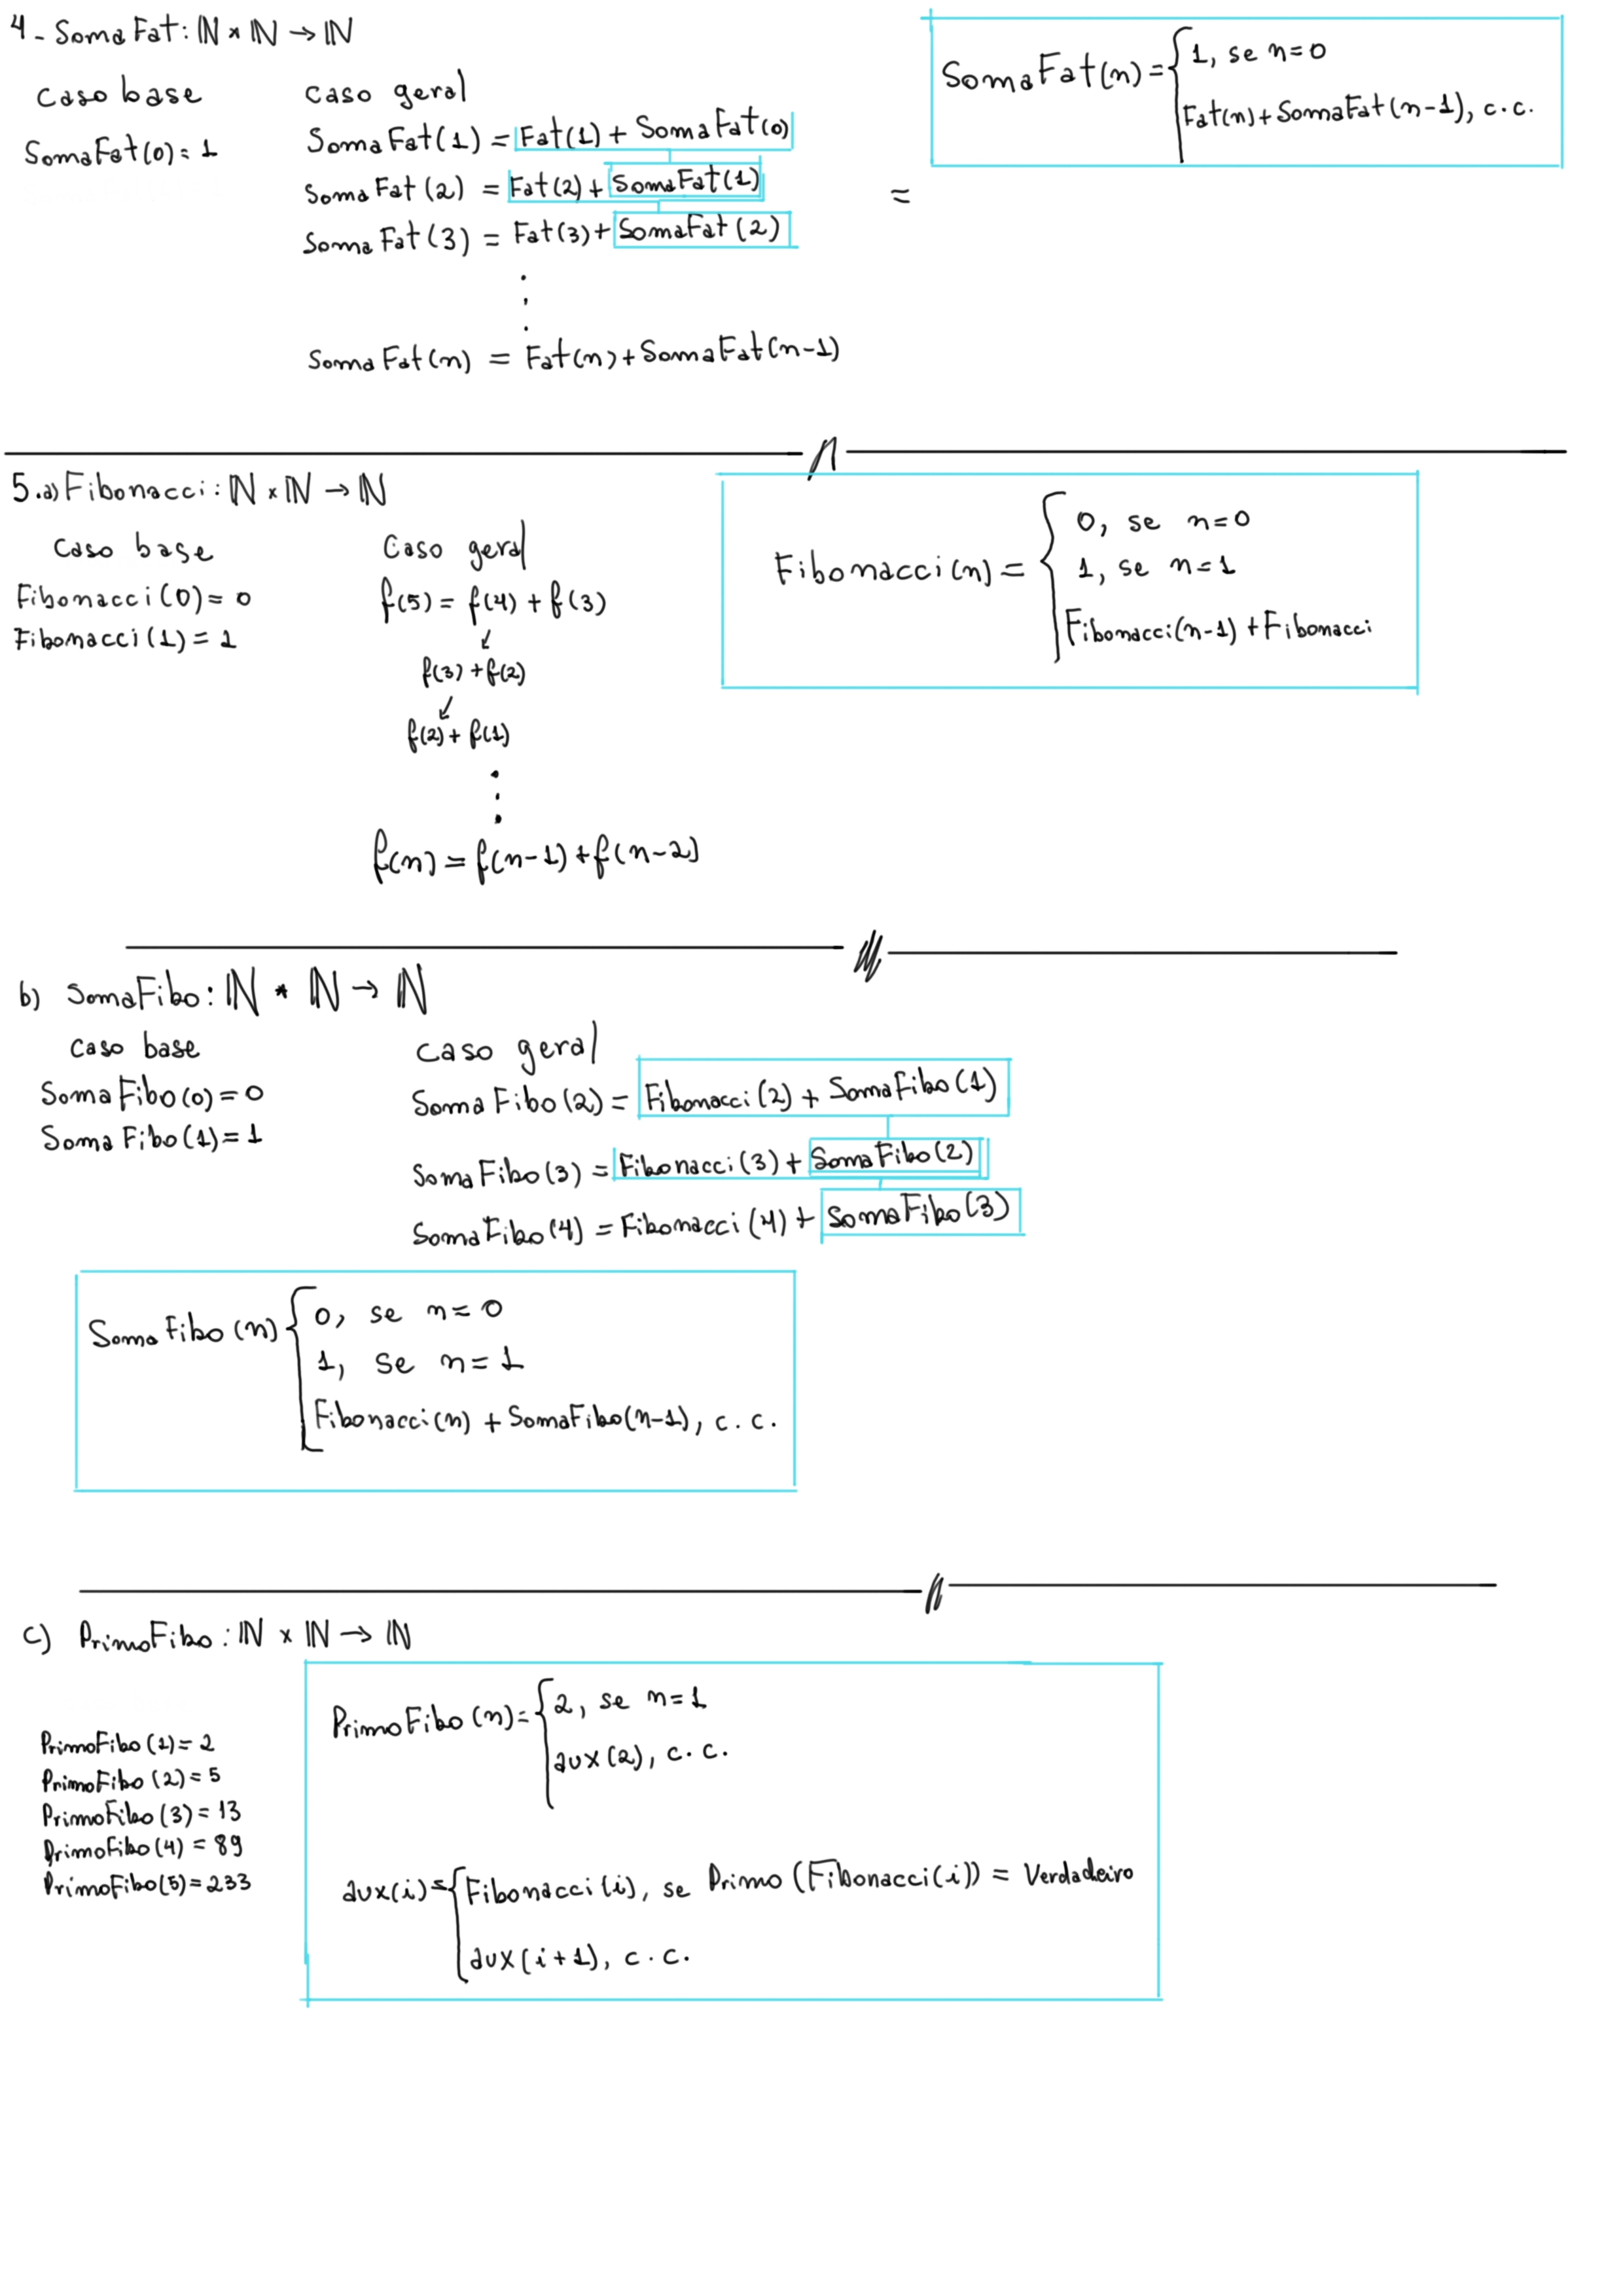 4 - SomaFat: ℕ × ℕ → ℕ
caso base
SomaFat(0) = 1
caso geral
SomaFat(1) = Fat(1) + SomaFat(0)
SomaFat(2) = Fat(2) + SomaFat(1)
SomaFat(3) = Fat(3) + SomaFat(2)
⋮
SomaFat(n) = Fat(n) + SomaFat(n-1)
=
SomaFat(n) = { 1, se n=0
Fat(n) + SomaFat(n-1), c.c.
5.a) Fibonacci: ℕ × ℕ → ℕ
caso base
Fibonacci(0) = 0
Fibonacci(1) = 1
Caso geral
f(5) = f(4) + f(3)
↙
f(3) + f(2)
↙
f(2) + f(1)
⋮
f(n) = f(n-1) + f(n-2)
Fibonacci(n) = { 0, se n=0
1, se n=1
Fibonacci(n-1) + Fibonacci
b) SomaFibo: ℕ * ℕ → ℕ
caso base
SomaFibo(0) = 0
SomaFibo(1) = 1
caso geral
SomaFibo(2) = Fibonacci(2) + SomaFibo(1)
SomaFibo(3) = Fibonacci(3) + SomaFibo(2)
SomaFibo(4) = Fibonacci(4) + SomaFibo(3)
SomaFibo(n) { 0, se n=0
1, se n=1
Fibonacci(n) + SomaFibo(n-1), c.c.
c) PrimoFibo: ℕ × ℕ → ℕ
PrimoFibo(1) = 2
PrimoFibo(2) = 5
PrimoFibo(3) = 13
PrimoFibo(4) = 89
PrimoFibo(5) = 233
PrimoFibo(n) = { 2, se n=1
aux(2), c.c.
aux(i) = { Fibonacci(i), se Primo(Fibonacci(i)) = Verdadeiro
aux(i+1), c.c.